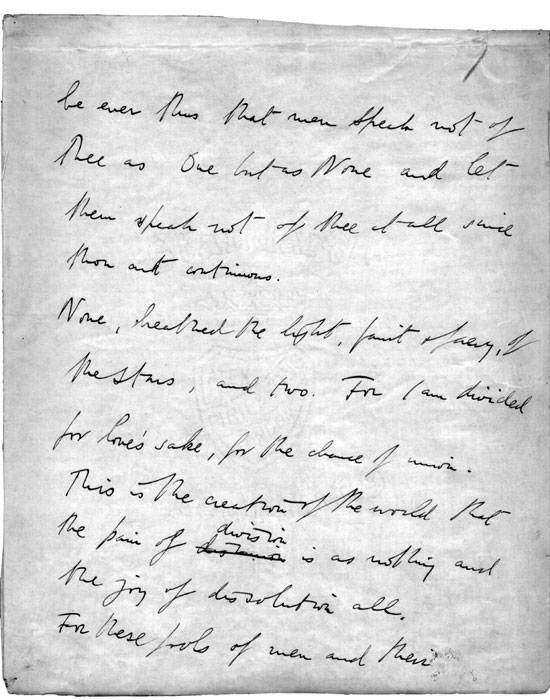 7
be ever thus that men speak not of
Thee as One but as None and let
them speak not of thee at all since
thou art continuous.
None, breathed the light, faint & faery, of
the stars, and two. For I am divided
for love's sake, for the chance of union.
This is the creation of the world that
division
the pain of is as nothing and
the joy of dissolution all.
For these fools of men and their